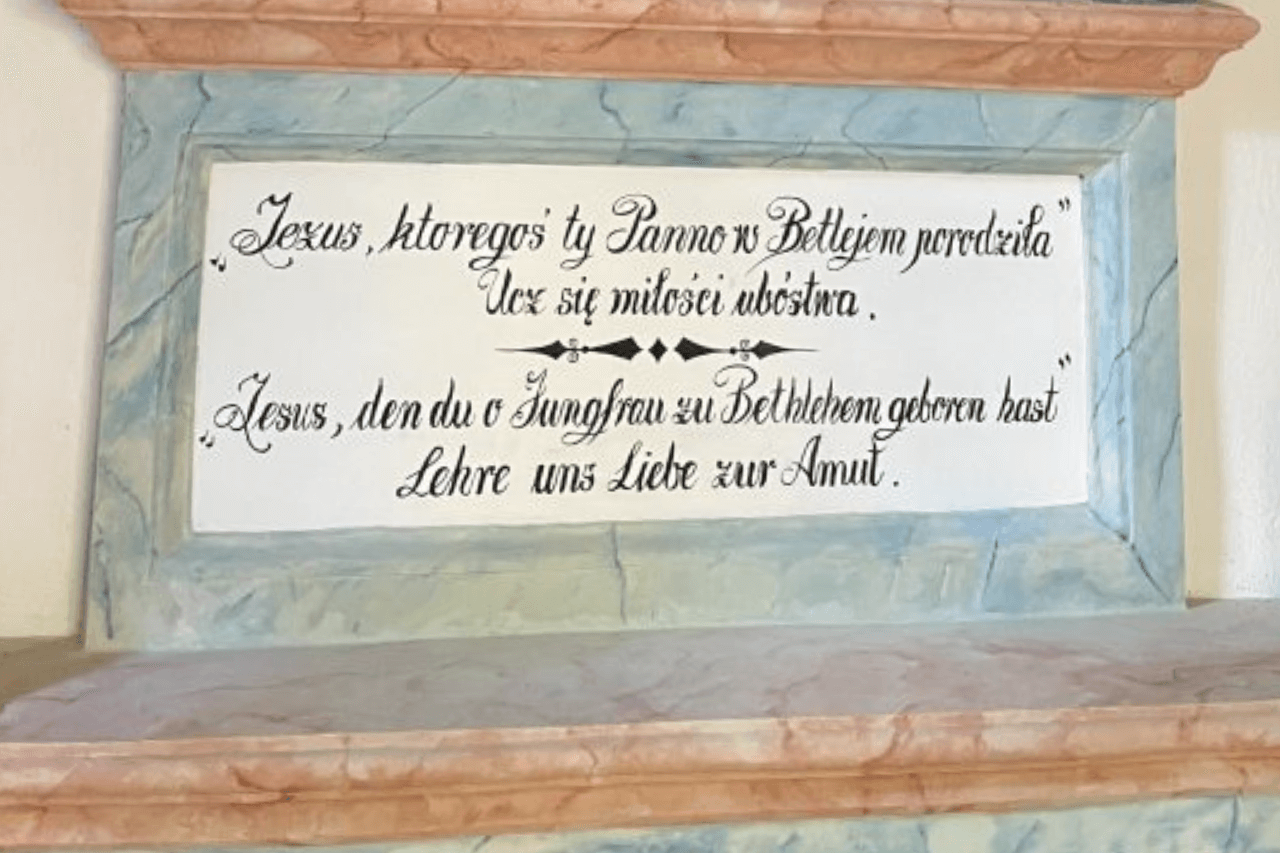 „Jezus, ktoregoś ty Panno w Betlejem porodziła”
Ucz się miłości ubóstwa.
„Jesus, den du o Jungfrau zu Bethlehem geboren hast”
Lehre uns Liebe zur Amut.